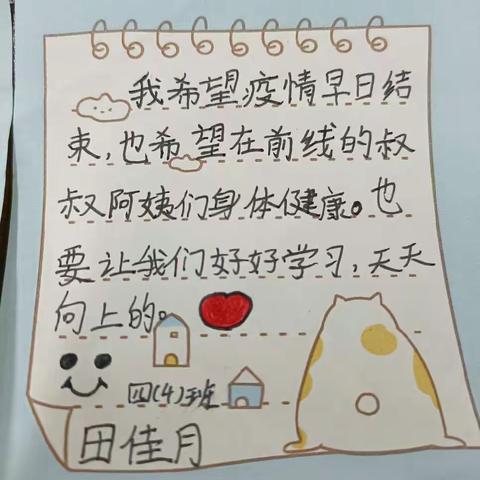 我希望疫情早日结
束,也希望在前线的叔
叔阿姨们身体健康。也
要让我们好好学习,天天
向上的。
四(4)班
田佳月